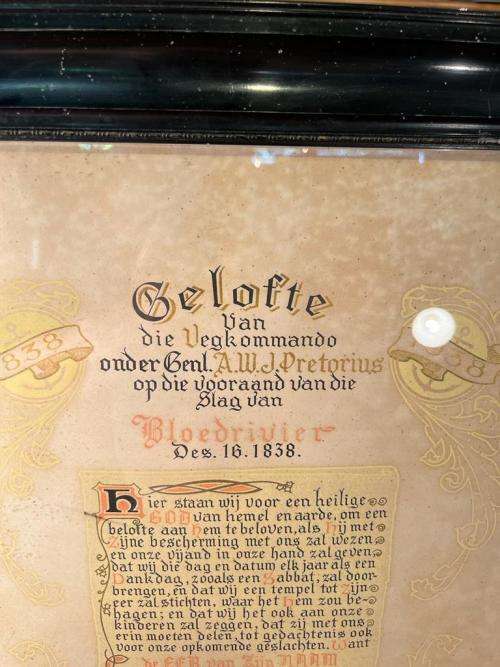 Gelofte
Van
die Vegkommando
onder Genl. A.W.J. Pretorius
op die vooraand van die
Slag van
Bloedrivier
Des. 16. 1838.
838
1838
Hier staan wij voor een heilige
GOD van hemel en aarde, om een
belofte aan Hem te beloven, als Hij met
Zijne bescherming met ons zal wezen
en onze vijand in onze hand zal geven,
dat wij die dag en datum elk jaar als een
Dankdag, zooals een Sabbat, zal door-
brengen, en dat wij een tempel tot Zijn
eer zal stichten, waar het Hem zou be-
hagen; en dat wij het ook aan onze
kinderen zal zeggen, dat zij met ons
erin moeten delen, tot gedachtenis ook
voor onze opkomende geslachten. Want
de EER van Zijn NAAM